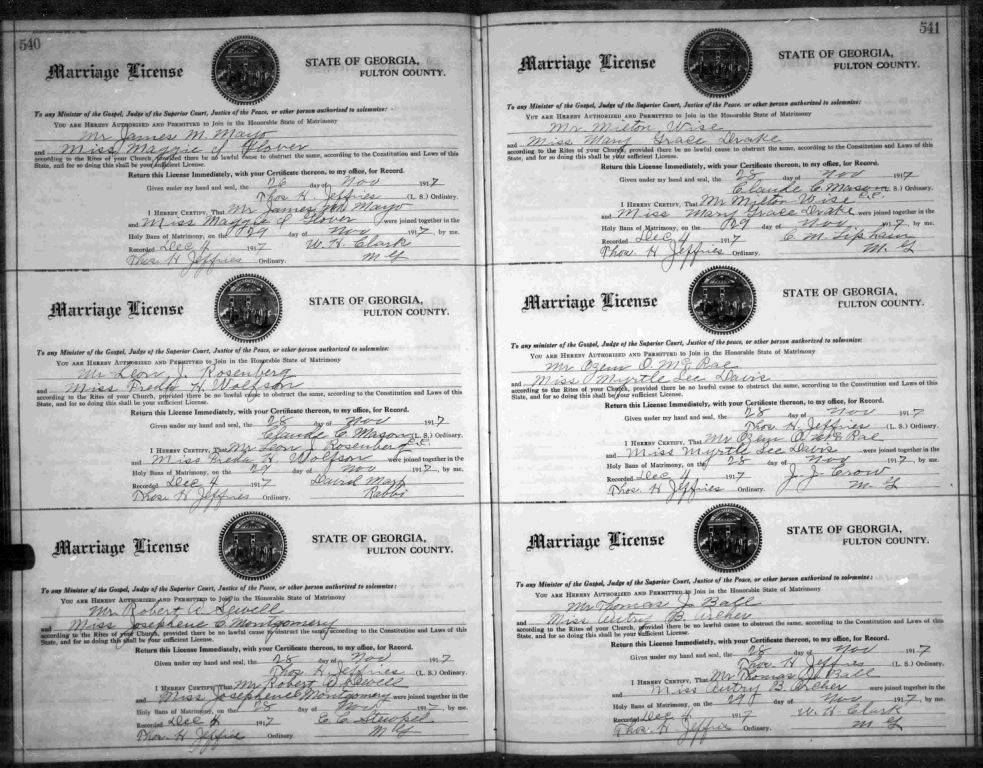 540
Marriage License
STATE OF GEORGIA,
FULTON COUNTY.
To any Minister of the Gospel, Judge of the Superior Court, Justice of the Peace, or other person authorized to solemnize:
YOU ARE HEREBY AUTHORIZED AND PERMITTED to Join in the Honorable State of Matrimony
Mr James M. Mayo
and Miss Maggie J Glover
according to the Rites of your Church, provided there be no lawful cause to obstruct the same, according to the Constitution and Laws of this
State, and for so doing this shall be your sufficient License.
Return this License Immediately, with your Certificate thereon, to my office, for Record.
Given under my hand and seal, the 26 day of Nov 1917
Thos. H. Jeffries (L. S.) Ordinary.
I HEREBY CERTIFY, That Mr James M Mayo
and Miss Maggie J Glover were joined together in the
Holy Bans of Matrimony, on the 29 day of Nov 1917, by me.
Recorded Dec 4 1917 W. H. Clark
Thos. H Jeffries Ordinary. M G
Marriage License
STATE OF GEORGIA,
FULTON COUNTY.
To any Minister of the Gospel, Judge of the Superior Court, Justice of the Peace, or other person authorized to solemnize:
YOU ARE HEREBY AUTHORIZED AND PERMITTED to Join in the Honorable State of Matrimony
Mr Leon J. Rosenberg
and Miss Freda H. Wolfson
according to the Rites of your Church, provided there be no lawful cause to obstruct the same, according to the Constitution and Laws of this
State, and for so doing this shall be your sufficient License.
Return this License Immediately, with your Certificate thereon, to my office, for Record.
Given under my hand and seal, the 28 day of Nov 1917
Claude C. Mason (L. S.) Ordinary.
I HEREBY CERTIFY, That Mr Leon J. Rosenberg
and Miss Freda H. Wolfson were joined together in the
Holy Bans of Matrimony, on the 29 day of Nov 1917, by me.
Recorded Dec 4 1917 David Marx
Thos. H Jeffries Ordinary. Rabbi
Marriage License
STATE OF GEORGIA,
FULTON COUNTY.
To any Minister of the Gospel, Judge of the Superior Court, Justice of the Peace, or other person authorized to solemnize:
YOU ARE HEREBY AUTHORIZED AND PERMITTED to Join in the Honorable State of Matrimony
Mr Robert A. Sewell
and Miss Josephene C Montgomery
according to the Rites of your Church, provided there be no lawful cause to obstruct the same, according to the Constitution and Laws of this
State, and for so doing this shall be your sufficient License.
Return this License Immediately, with your Certificate thereon, to my office, for Record.
Given under my hand and seal, the 28 day of Nov 1917
Thos H Jeffries (L. S.) Ordinary.
I HEREBY CERTIFY, That Mr Robert A Sewell
and Miss Josephene Montgomery were joined together in the
Holy Bans of Matrimony, on the 28 day of Nov 1917, by me.
Recorded Dec 4 1917 C. C.
Thos. H Jeffries Ordinary. M G
541
Marriage License
STATE OF GEORGIA,
FULTON COUNTY.
To any Minister of the Gospel, Judge of the Superior Court, Justice of the Peace, or other person authorized to solemnize:
YOU ARE HEREBY AUTHORIZED AND PERMITTED to Join in the Honorable State of Matrimony
Mr Milton Wise
and Miss Mary Grace Drake
according to the Rites of your Church, provided there be no lawful cause to obstruct the same, according to the Constitution and Laws of this
State, and for so doing this shall be your sufficient License.
Return this License Immediately, with your Certificate thereon, to my office, for Record.
Given under my hand and seal, the 28 day of Nov 1917
Claude C. Mason S.) Ordinary.
I HEREBY CERTIFY, That Mr Milton Wise
and Miss Mary Grace Drake were joined together in the
Holy Bans of Matrimony, on the 29 day of Nov 1917, by me.
Recorded Dec 4 1917 C. M. Lipham
Thos. H Jeffries Ordinary. M. G
Marriage License
STATE OF GEORGIA,
FULTON COUNTY.
To any minister of the Gospel, Judge of the Superior Court, Justice of the Peace, or other person authorized to solemnize:
YOU ARE HEREBY AUTHORIZED AND PERMITTED to Join in the Honorable State of Matrimony
Mr Ozein O. McRae
and Miss Myrtle Lee Davis
according to the Rites of your Church, provided there be no lawful cause to obstruct the same, according to the Constitution and Laws of this
State, and for so doing this shall be your sufficient License.
Return this License Immediately, with your Certificate thereon, to my office, for Record.
Given under my hand and seal, the 28 day of Nov 1917
Thos. H. Jeffries (L. S.) Ordinary.
I HEREBY CERTIFY, That Mr Ozein O. McRae
and Miss Myrtle Lee Davis were joined together in the
Holy Bans of Matrimony, on the 28 day of Nov 1917, by me.
Recorded Dec 4 1917 J. J. Crow
Thos. H Jeffries Ordinary. M. G
Marriage License
STATE OF GEORGIA,
FULTON COUNTY.
To any Minister of the Gospel, Judge of the Superior Court, Justice of the Peace, or other person authorized to solemnize:
YOU ARE HEREBY AUTHORIZED AND PERMITTED to Join in the Honorable State of Matrimony
Mr Thomas J. Ball
and Miss Autry B. Archer
according to the Rites of your Church, provided there be no lawful cause to obstruct the same, according to the Constitution and Laws of this
State, and for so doing this shall be your sufficient License.
Return this License Immediately, with your Certificate thereon, to my office, for Record.
Given under my hand and seal, the 28 day of Nov 1917
Thos. H Jeffries (L. S.) Ordinary.
I HEREBY CERTIFY, That Mr Thomas J. Ball
and Miss Autry B Archer were joined together in the
Holy Bans of Matrimony, on the 29 day of Nov 1917, by me.
Recorded Dec 4 1917 W. H. Clark
Thos. H Jeffries Ordinary. M G